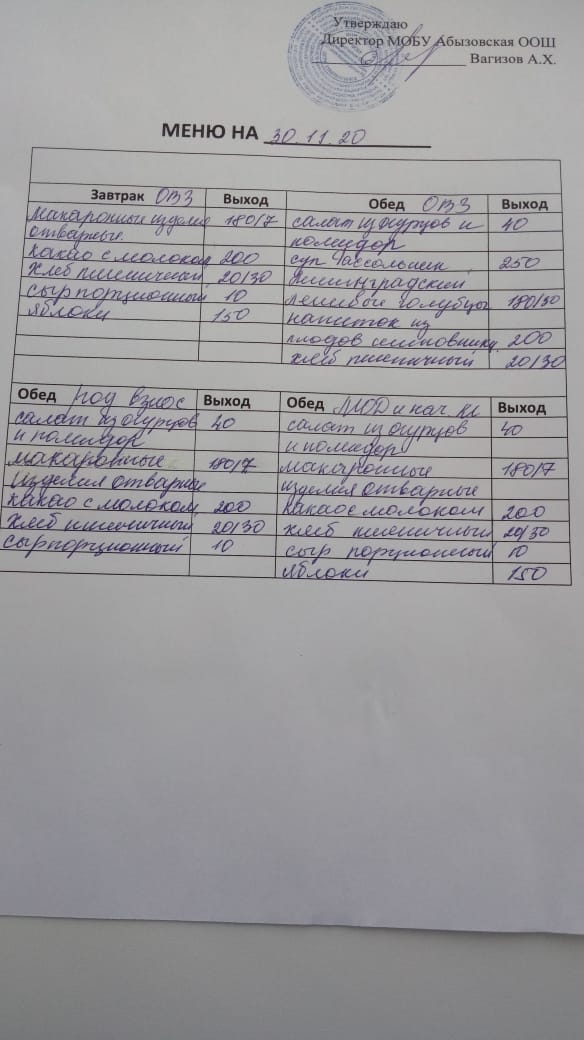 Утверждаю
Директор МОБУ Абызовская ООШ
Вагизов А.Х.
МЕНЮ НА 30.11.20
Завтрак ОВЗ Выход Обед ОВЗ Выход
макаронные изделия 180/7 салат из огурцов и 40
отварные помидор
какао с молоком 200 суп Рассольник 250
хлеб пшеничный 20/30 ленинградский
сыр порционный 10 ленивые голубцы 180/30
яблоки 150 напиток из
плодов шиповника 200
хлеб пшеничный 20/30
Обед род взнос Выход Обед МОД и нач. кл Выход
салат из огурцов 40 салат из огурцов 40
и помидор и помидор
макаронные 180/7 макаронные 180/7
изделия отварные изделия отварные
какао с молоком 200 какао с молоком 200
хлеб пшеничный 20/30 хлеб пшеничный 20/30
сыр порционный 10 сыр порционный 10
яблоки 150